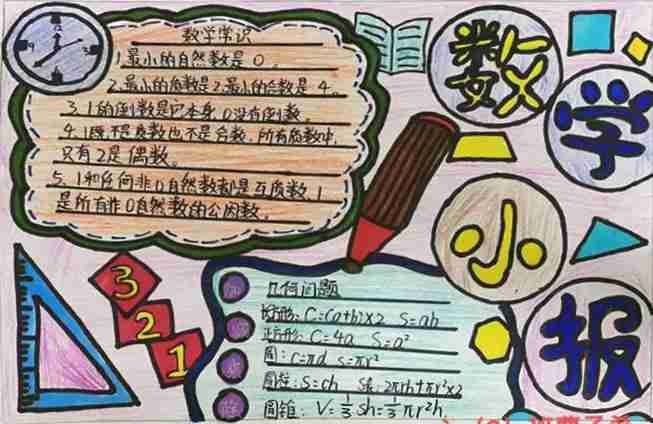 数学小报
数学常识
1.最小的自然数是0。
2.最小的质数是2.最小的合数是4。
3.1的倒数是它本身,0没有倒数。
4.1既不是质数也不是合数,所有质数中,
只有2是偶数。
5.1和任何非0自然数都是互质数,1
是所有非0自然数的公因数。
3
2
1
几何问题
长方形:C=(a+b)×2 S=ab
正方形:C=4a S=a²
圆:C=πd S=πr²
圆柱:S=ch S表:2πrh+πr²×2
圆锥:V=⅓Sh=⅓πr²h